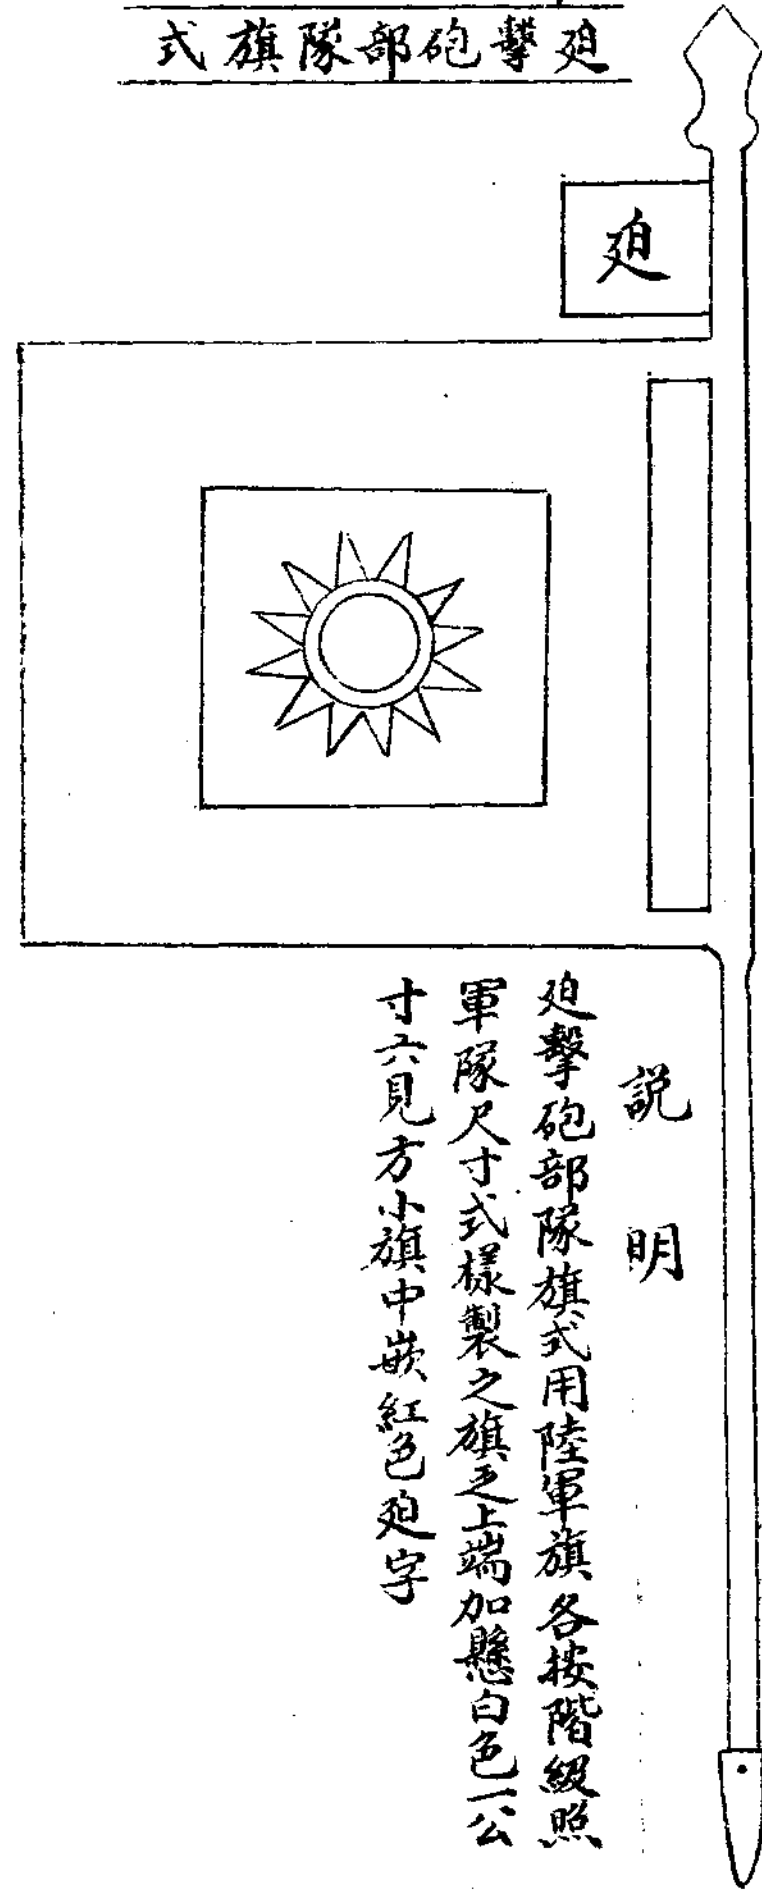 廹擊砲部隊旗式
廹
説明
廹擊砲部隊旗式用陸軍旗各按階級照
軍隊尺寸式樣製之旗之上端加懸白色一公
寸六見方小旗中嵌紅色廹字